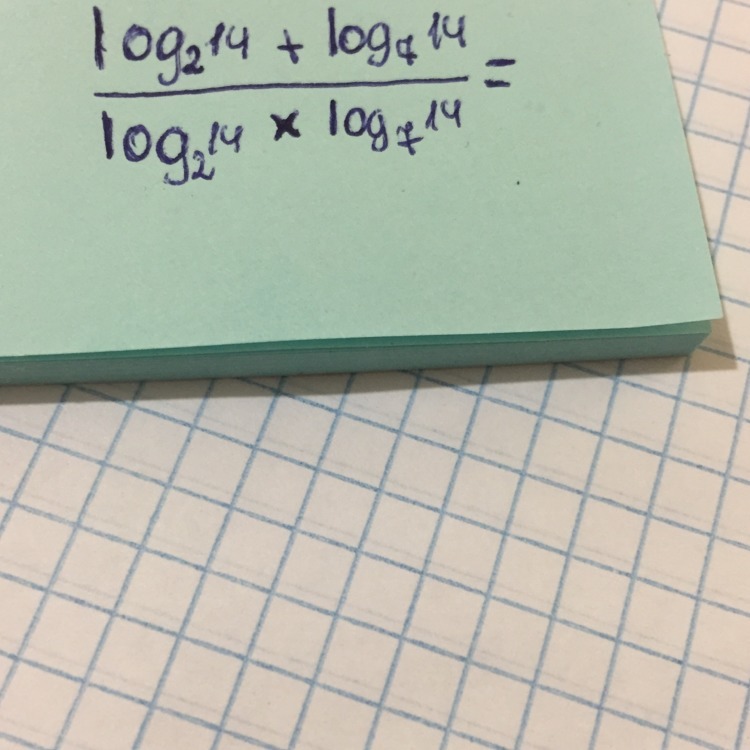 log₂14 + log₇14 =
log₂14 × log₇14